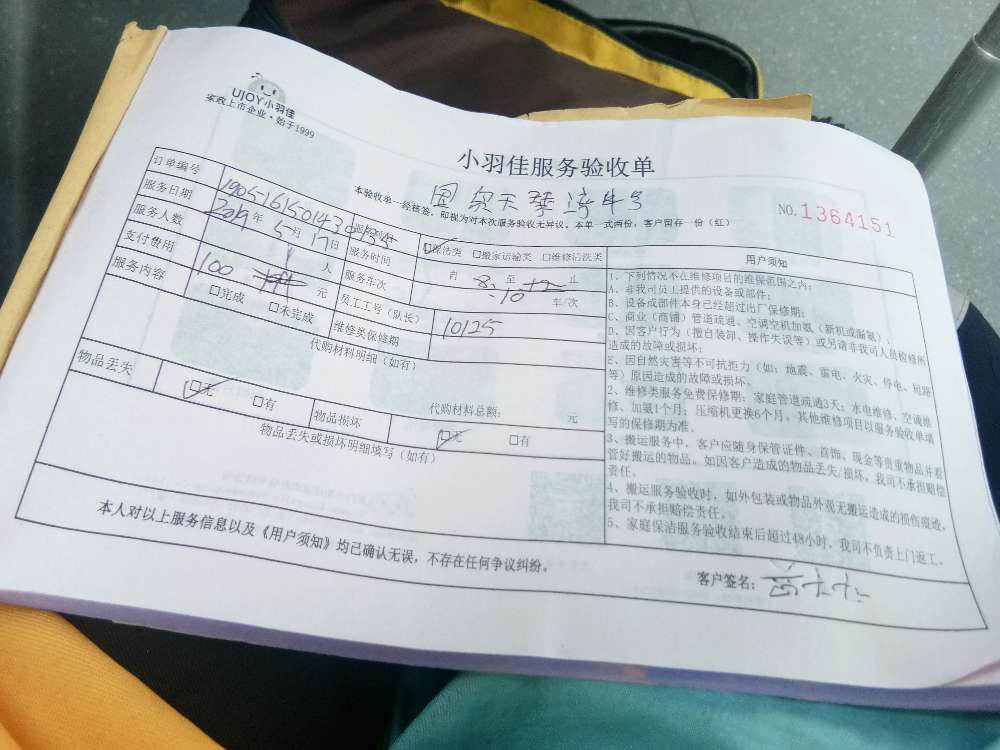 UJOY小羽佳
家政上市企业·始于1999
小羽佳服务验收单
本验收单一经核签，即视为对本次服务验收无异议。本单一式两份，客户留存一份（红）
NO.1364151
订单编号
服务类型 保洁类 □搬家运输类 □维修清洗类
服务日期 2019年5月17日 服务时间 自 8:10 至 止
服务人数 人 服务车次 车/次
支付费用 100 元 员工工号（队长） 10125
服务内容 □完成 □未完成 维修类保修期
代购材料明细（如有）
代购材料总额： 元
物品丢失 ☑无 □有 物品损坏 ☑无 □有
物品丢失或损坏明细填写（如有）
用户须知
1、下列情况不在维修项目的维保范围之内：
A、非我司员工提供的设备或部件；
B、设备或部件本身已经超过出厂保修期；
C、商业（商铺）管道疏通、空调空机加氨（新机或漏氨）、
D、因客户行为（擅自装卸、操作失误等）或另请非我司人员检修所
造成的故障或损坏；
E、因自然灾害等不可抗拒力（如：地震、雷电、火灾、停电、短路
等）原因造成的故障或损坏。
2、维修类服务免费保修期：家庭管道疏通3天；水电维修、空调维
修、加氨1个月；压缩机更换6个月。其他维修项目以服务验收单填
写的保修期为准。
3、搬运服务中，客户应随身保管证件、首饰、现金等贵重物品并看
管好搬运的物品。如因客户造成的物品丢失/损坏，我司不承担赔偿
责任。
4、搬运服务验收时，如外包装或物品外观无搬运造成的损伤痕迹，
我司不承担赔偿责任。
5、家庭保洁服务验收结束后超过48小时，我司不负责上门返工。
本人对以上服务信息以及《用户须知》均已确认无误，不存在任何争议纠纷。
客户签名：